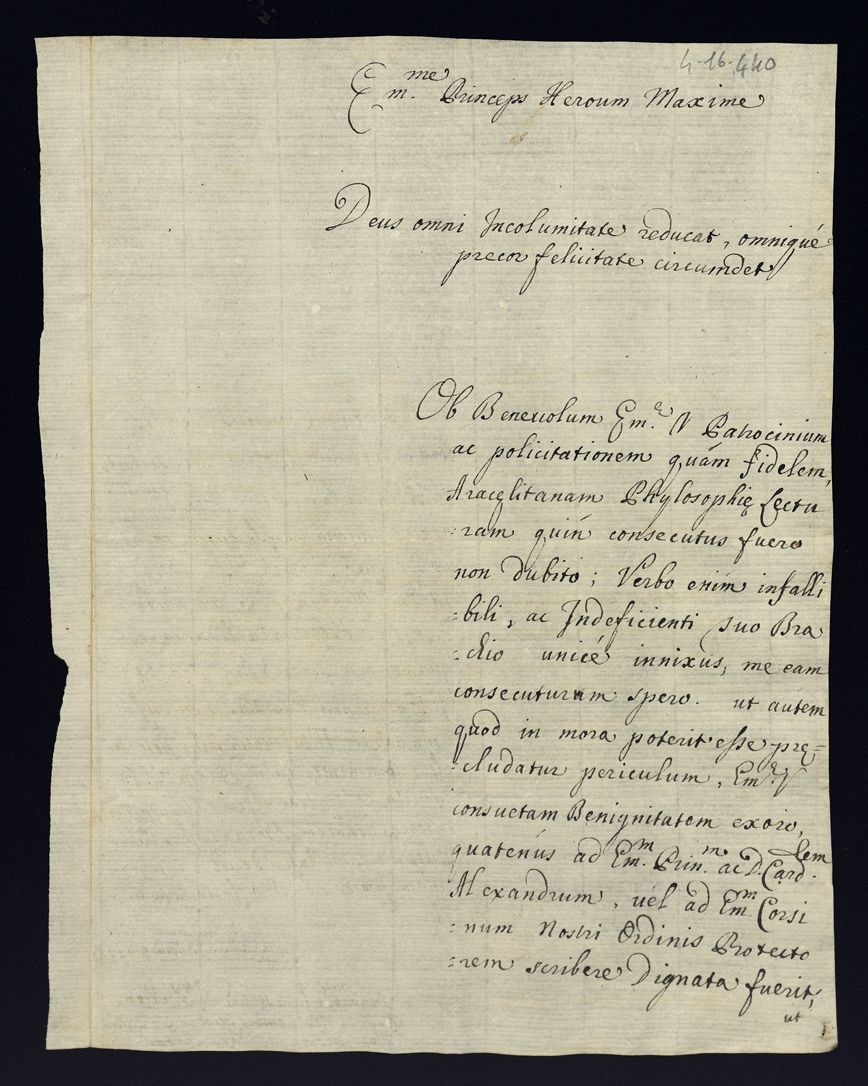 4-16,440
Em.me Princeps Heroum Maxime
Deus omni Incolumitate reducat, omniqué
precor felicitate circumdet
Ob Beneuolum Em.e V Patrocinium
ac policitationem quám fidelem,
Aracęlitanam Phylosophię Lectu
:ram quin consecutus fuero
non dubito; Verbo enim infalli
:bili, ac Indeficienti suo Bra
:chio unicé innixus, me eam
consecuturum spero. ut autem
quod in mora poterit esse prę=
:cludatur periculum, Em.e V
consuetam Benignitatem exoro,
quatenús ad Em.m Prin.m ac D. Card.lem
Alexandrum, uel ad Em.m Corsi
:num Nostri Ordinis Protecto
:rem scribere Dignata fuerit,
ut